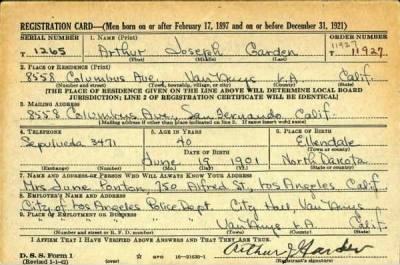 REGISTRATION CARD—(Men born on or after February 17, 1897 and on or before December 31, 1921)
SERIAL NUMBER 1. NAME (Print) ORDER NUMBER
T 1265 Arthur Joseph Garden 11927
11927
(First) (Middle) (Last)
2. PLACE OF RESIDENCE (Print)
8558 Columbus Ave, Van Nuys L.A. Calif.
(Number and street) (Town, township, village, or city) (County) (State)
[THE PLACE OF RESIDENCE GIVEN ON THE LINE ABOVE WILL DETERMINE LOCAL BOARD
JURISDICTION; LINE 2 OF REGISTRATION CERTIFICATE WILL BE IDENTICAL]
3. MAILING ADDRESS
8558 Columbus Ave, San Fernando Calif.
[Mailing address if other than place indicated on line 2. If same insert word same]
4. TELEPHONE 5. AGE IN YEARS 6. PLACE OF BIRTH
Sepulveda 3471 40 Ellendale
DATE OF BIRTH (Town or county)
June 19 1901 North Dakota
(Exchange) (Number) (Mo.) (Day) (Yr.) (State or country)
7. NAME AND ADDRESS OF PERSON WHO WILL ALWAYS KNOW YOUR ADDRESS
Mrs June 750 Alfred St, Los Angeles, Calif
8. EMPLOYER'S NAME AND ADDRESS
City of Los Angeles Police Dept. City Hall Van Nuys
9. PLACE OF EMPLOYMENT OR BUSINESS
Van Nuys LA Calif
(Number and street or R. F. D. number) (Town) (County) (State)
I AFFIRM THAT I HAVE VERIFIED ABOVE ANSWERS AND THAT THEY ARE TRUE.
D. S. S. Form 1
(Revised 1-1-42) (over) GPO 16—21630-1 Arthur J Garden